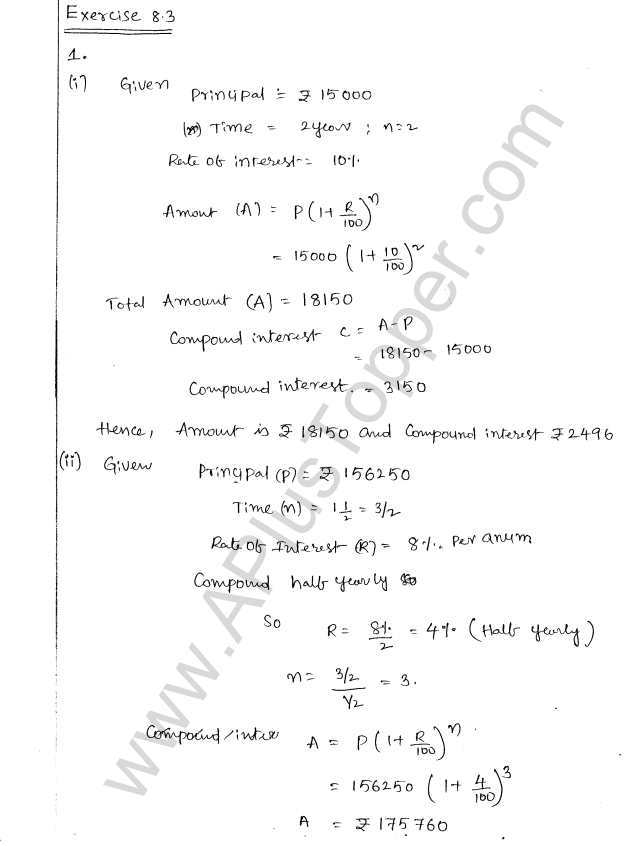 Exercise 8.3
1.
(i) Given Principal = ₹ 15000
(n) Time = 2 year ; n=2
Rate of interest = 10%
Amount (A) = P(1+ R/100)^n
= 15000 (1+ 10/100)^2
Total Amount (A) = 18150
Compound interest C = A-P
= 18150 - 15000
Compound interest. = 3150
Hence, Amount is ₹ 18150 and Compound interest ₹ 2496
(ii) Given Principal (P) = ₹ 156250
Time (n) = 1 1/2 = 3/2
Rate of Interest (R) = 8%. Per anum
Compound half yearly
So R = 8%/2 = 4% (Half yearly)
n = 3/2 / 1/2 = 3.
Compound A = P(1+ R/100)^n
= 156250 (1+ 4/100)^3
A = ₹ 175760
www.APlusTopper.com